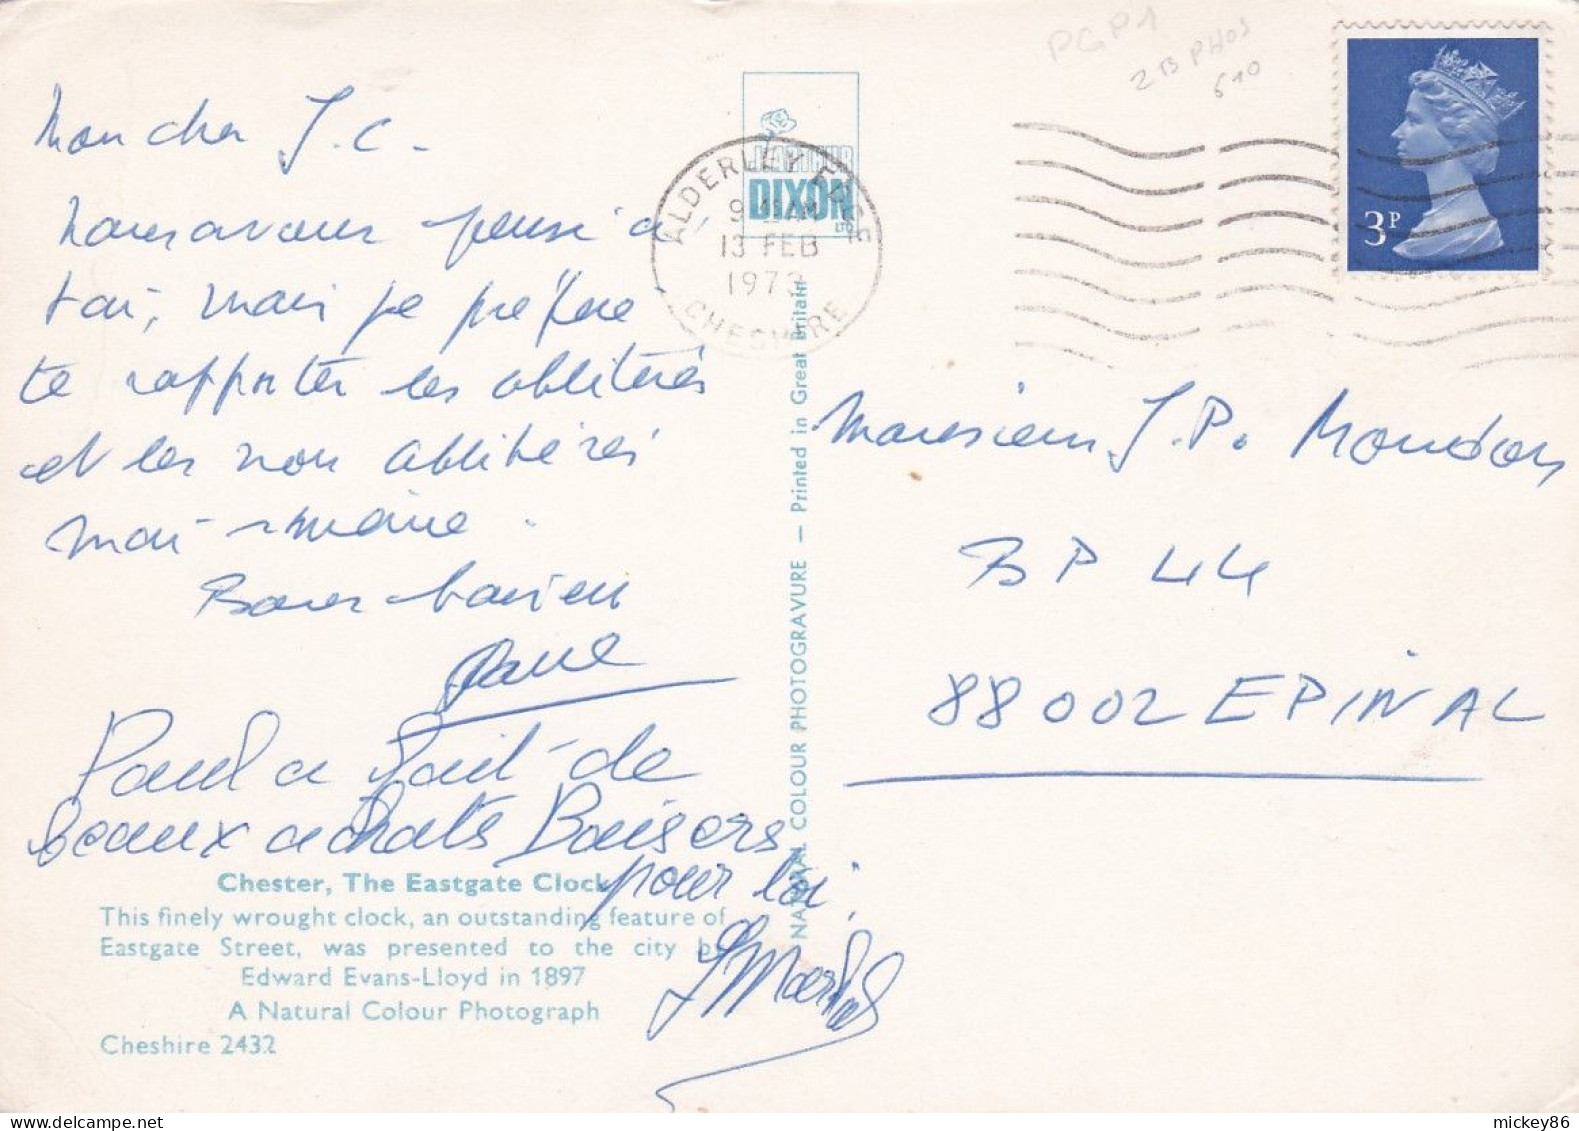 PGP1
2B PHOS
610
Mon cher J.C.
nous avons pensé à
toi, mais je préfère
te rapporter les oblitérés
et les non oblitérés
moi-même.
Bons baisers
Paul a fait de
beaux achats Baisers
pour toi.
ALDERLEY EDGE
13 FEB
1973
CHESHIRE
J. ARTHUR
DIXON
3P
Monsieur J.P. Moudon
BP 44
88002 EPINAL
NATURAL COLOUR PHOTOGRAVURE — Printed in Great Britain
Chester, The Eastgate Clock
This finely wrought clock, an outstanding feature of
Eastgate Street, was presented to the city by
Edward Evans-Lloyd in 1897
A Natural Colour Photograph
Cheshire 2432
mickey86